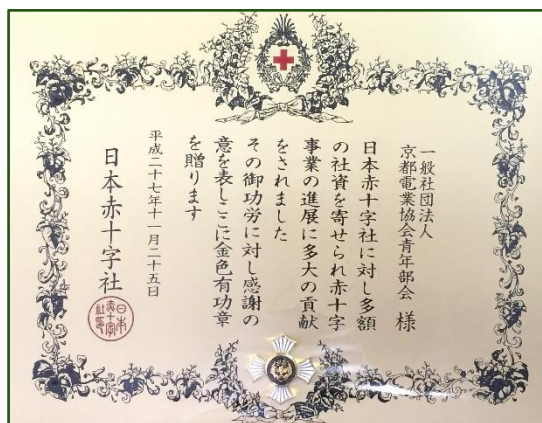 一般社団法人
京都電業協会青年部会 様
日本赤十字社に対し多額
の社資を寄せられ赤十字
事業の進展に多大の貢献
をされました
その御功労に対し感謝の
意を表しここに金色有功章
を贈ります
平成二十七年十一月二十五日
日本赤十字社
日本赤十字社印